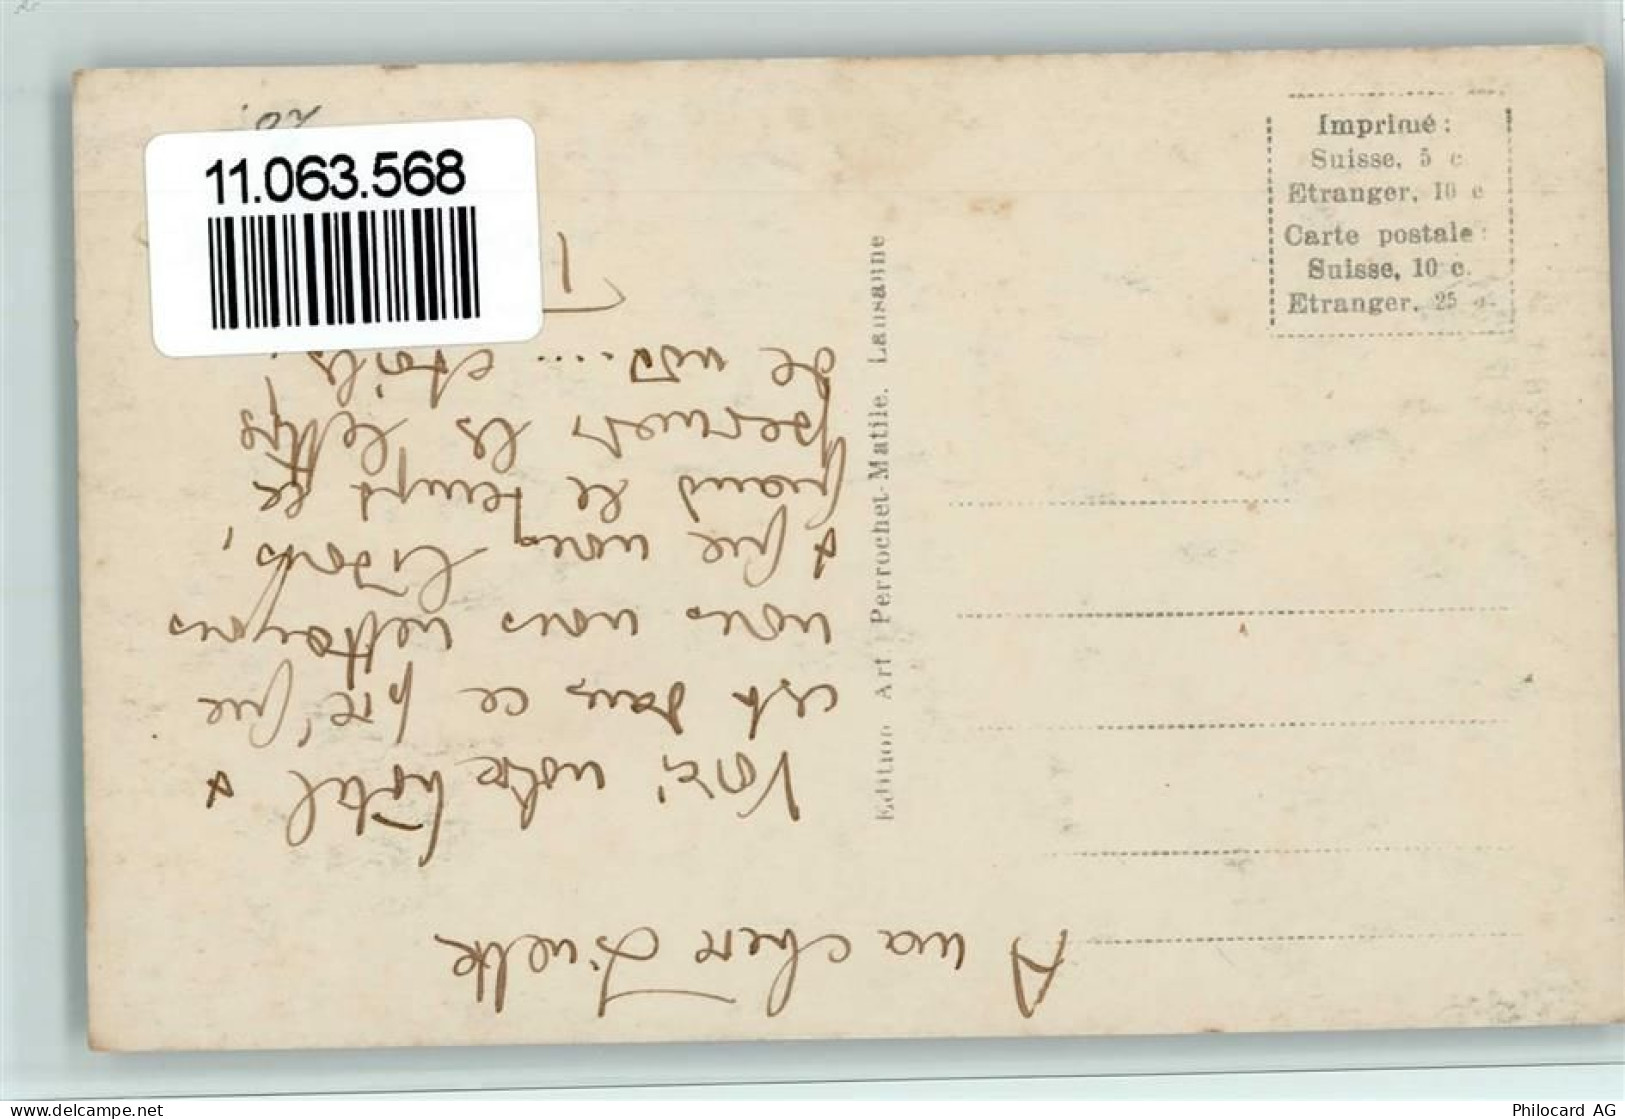 11.063.568
Imprimé :
Suisse, 5 c
Etranger, 10 c
Carte postale :
Suisse, 10 c.
Etranger, 25 c.
Edition Art. Perrochet-Matile. Lausanne
A ma chère
Voici notre hôtel &
c'est dans ce pré que
nous nous
& que nous lisons,
quand le temps le
permet, les
de nos.... 
T
delcampe.net
Philocard AG